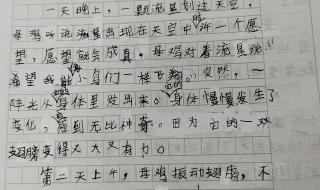 一天晚上，一颗流星划过天空，
母鸡听说流星出现在天空中时许一个愿
望，愿望就会成真，母鸡对着流星说：
希望我能像小鸟们一样飞翔。突然，一
阵光从身体里发出来。它的身体慢慢发生了
变化，感到无比神奇。因为它的一双
翅膀变得又大又有力。
第二天上午，母鸡振动翅膀，不